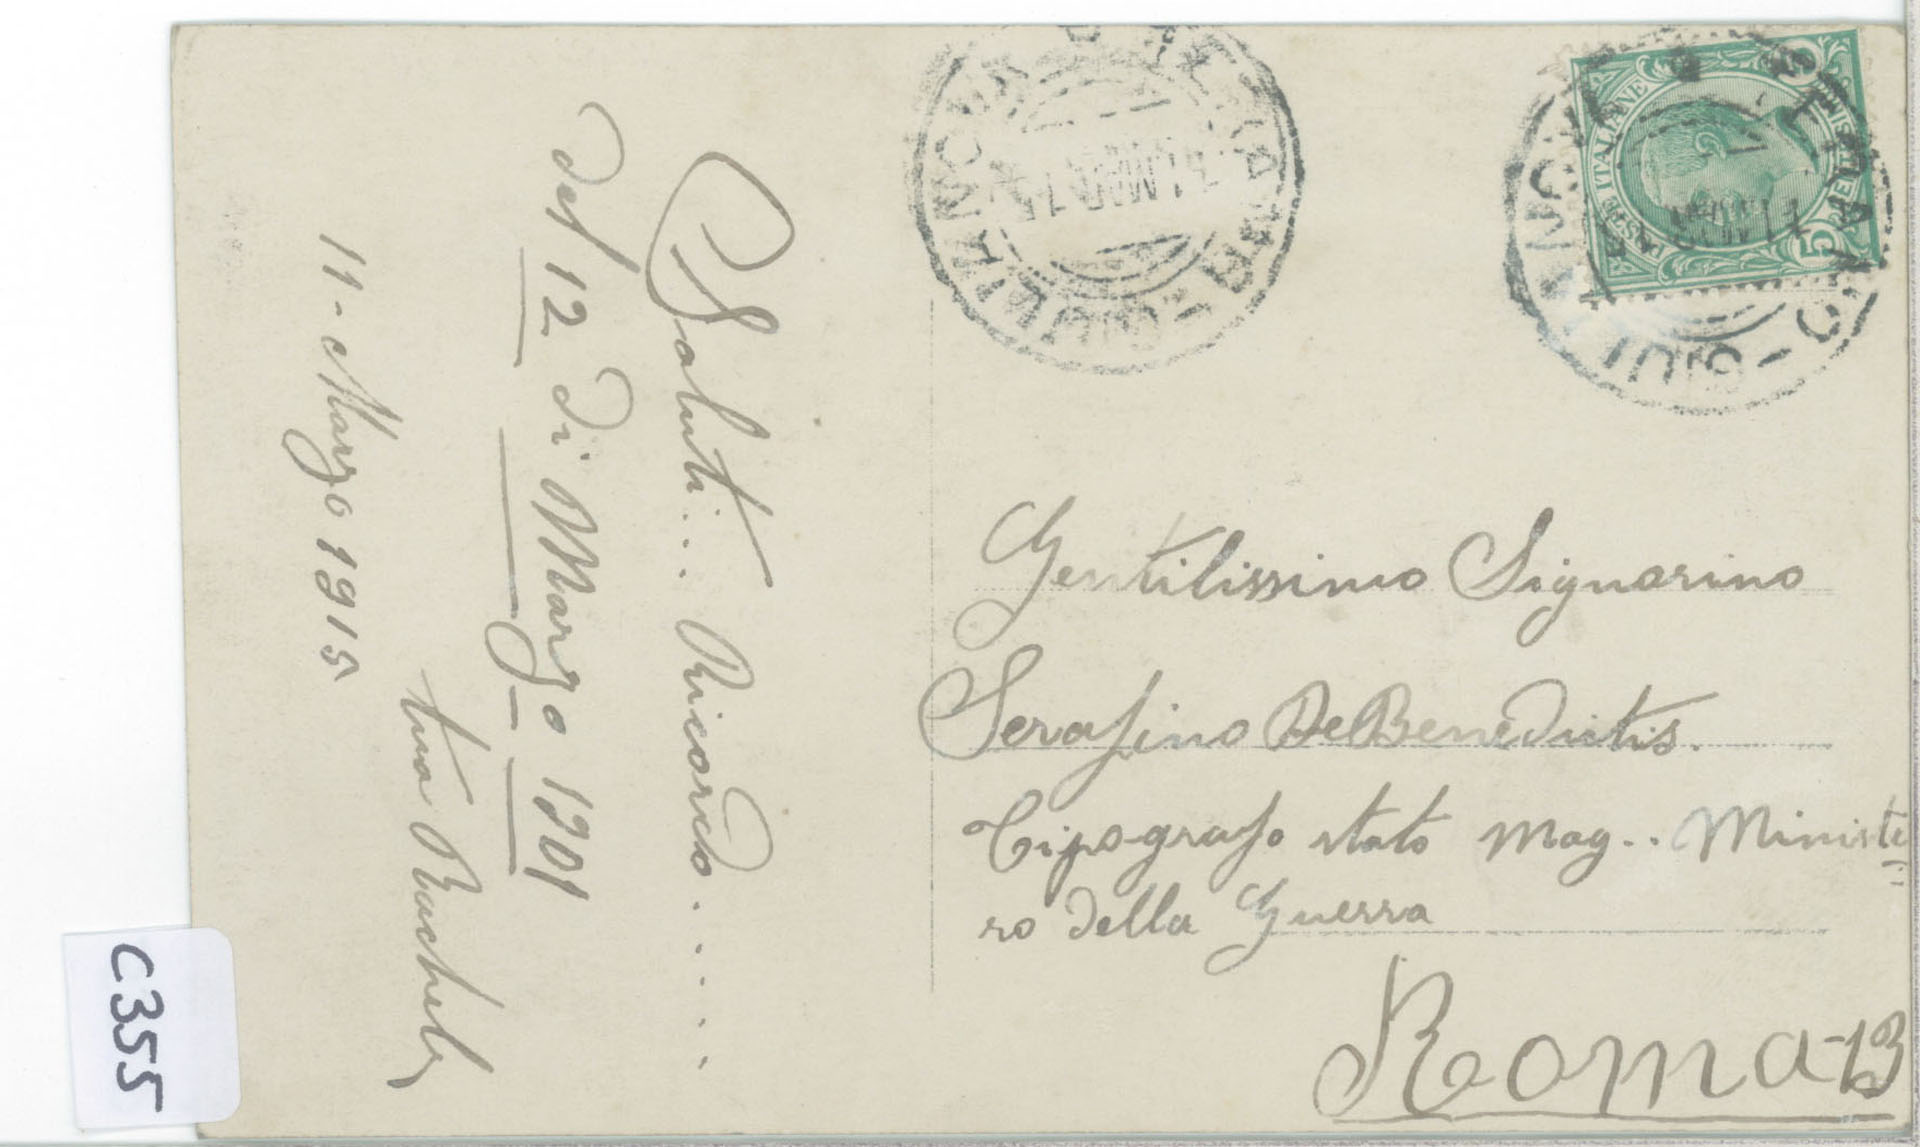 Saluti... Ricordo.....
del 12 di Marzo 1901
tua Rachele
11-Marzo 1915
Gentilissimo Signorino
Serafino De Benedictis.
Tipografo stato Mag.. Ministe=
ro della Guerra
Roma-13
POSTE ITALIANE
5
C355